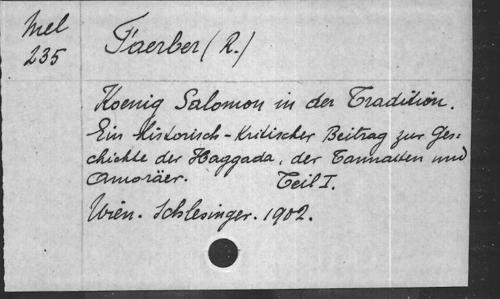 Mel
235
Faerber (R.)
Koenig Salomon in der Tradition.
Ein historisch-kritischer Beitrag zur Ges=
chichte der Haggada, der Tannaiten und
Amoräer. Teil I.
Wien. Schlesinger. 1902.